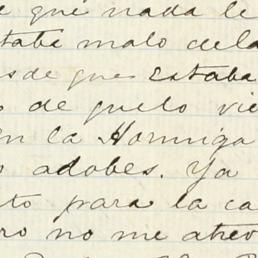 e que nada le
staba malo dela
esde que estaba
s de quelo vie
en la Hormiga
s adobes. Ya
to para la ca
ro no me atrev